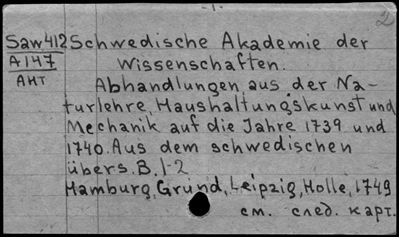 -1-
2
Saw412 Schwedische Akademie der
A147 Wissenschaften.
Акт
Abhandlungen aus der Na-
turlehre, Haushaltungskunst und
Mechanik auf die Jahre 1739 und
1740. Aus dem schwedischen
übers. B. 1-2
Hamburg, Grund, Leipzig, Holle, 1749
см. след. карт.